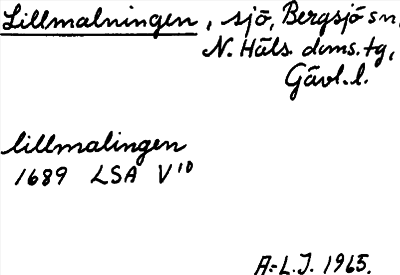 Lillmalningen, sjö, Bergsjö sn,
N. Häls. doms. tg,
Gävl. l.
lillmalingen
1689 LSA V¹⁰
A.-L.J. 1965.